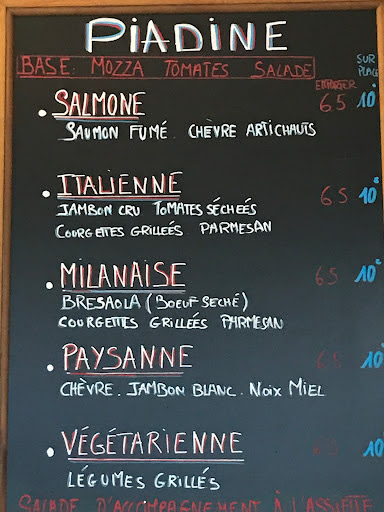 PIADINE
BASE: MOZZA TOMATES SALADE
SUR PLACE
EMPORTER
SALMONE 65 10€
SAUMON FUMÉ. CHÈVRE ARTICHAUTS
ITALIENNE 65 10€
JAMBON CRU TOMATES SÉCHEÉS
COURGETTES GRILLEÉS PARMESAN
MILANAISE 65 10€
BRESAOLA (BOEUF SECHÉ)
COURGETTES GRILLÉES PARMESAN
PAYSANNE 65 10€
CHÈVRE. JAMBON BLANC. NOIX MIEL
VÉGÉTARIENNE 65 10€
LÉGUMES GRILLÉS
SALADE D'ACCOMPAGNEMENT À L'ASSIETTE